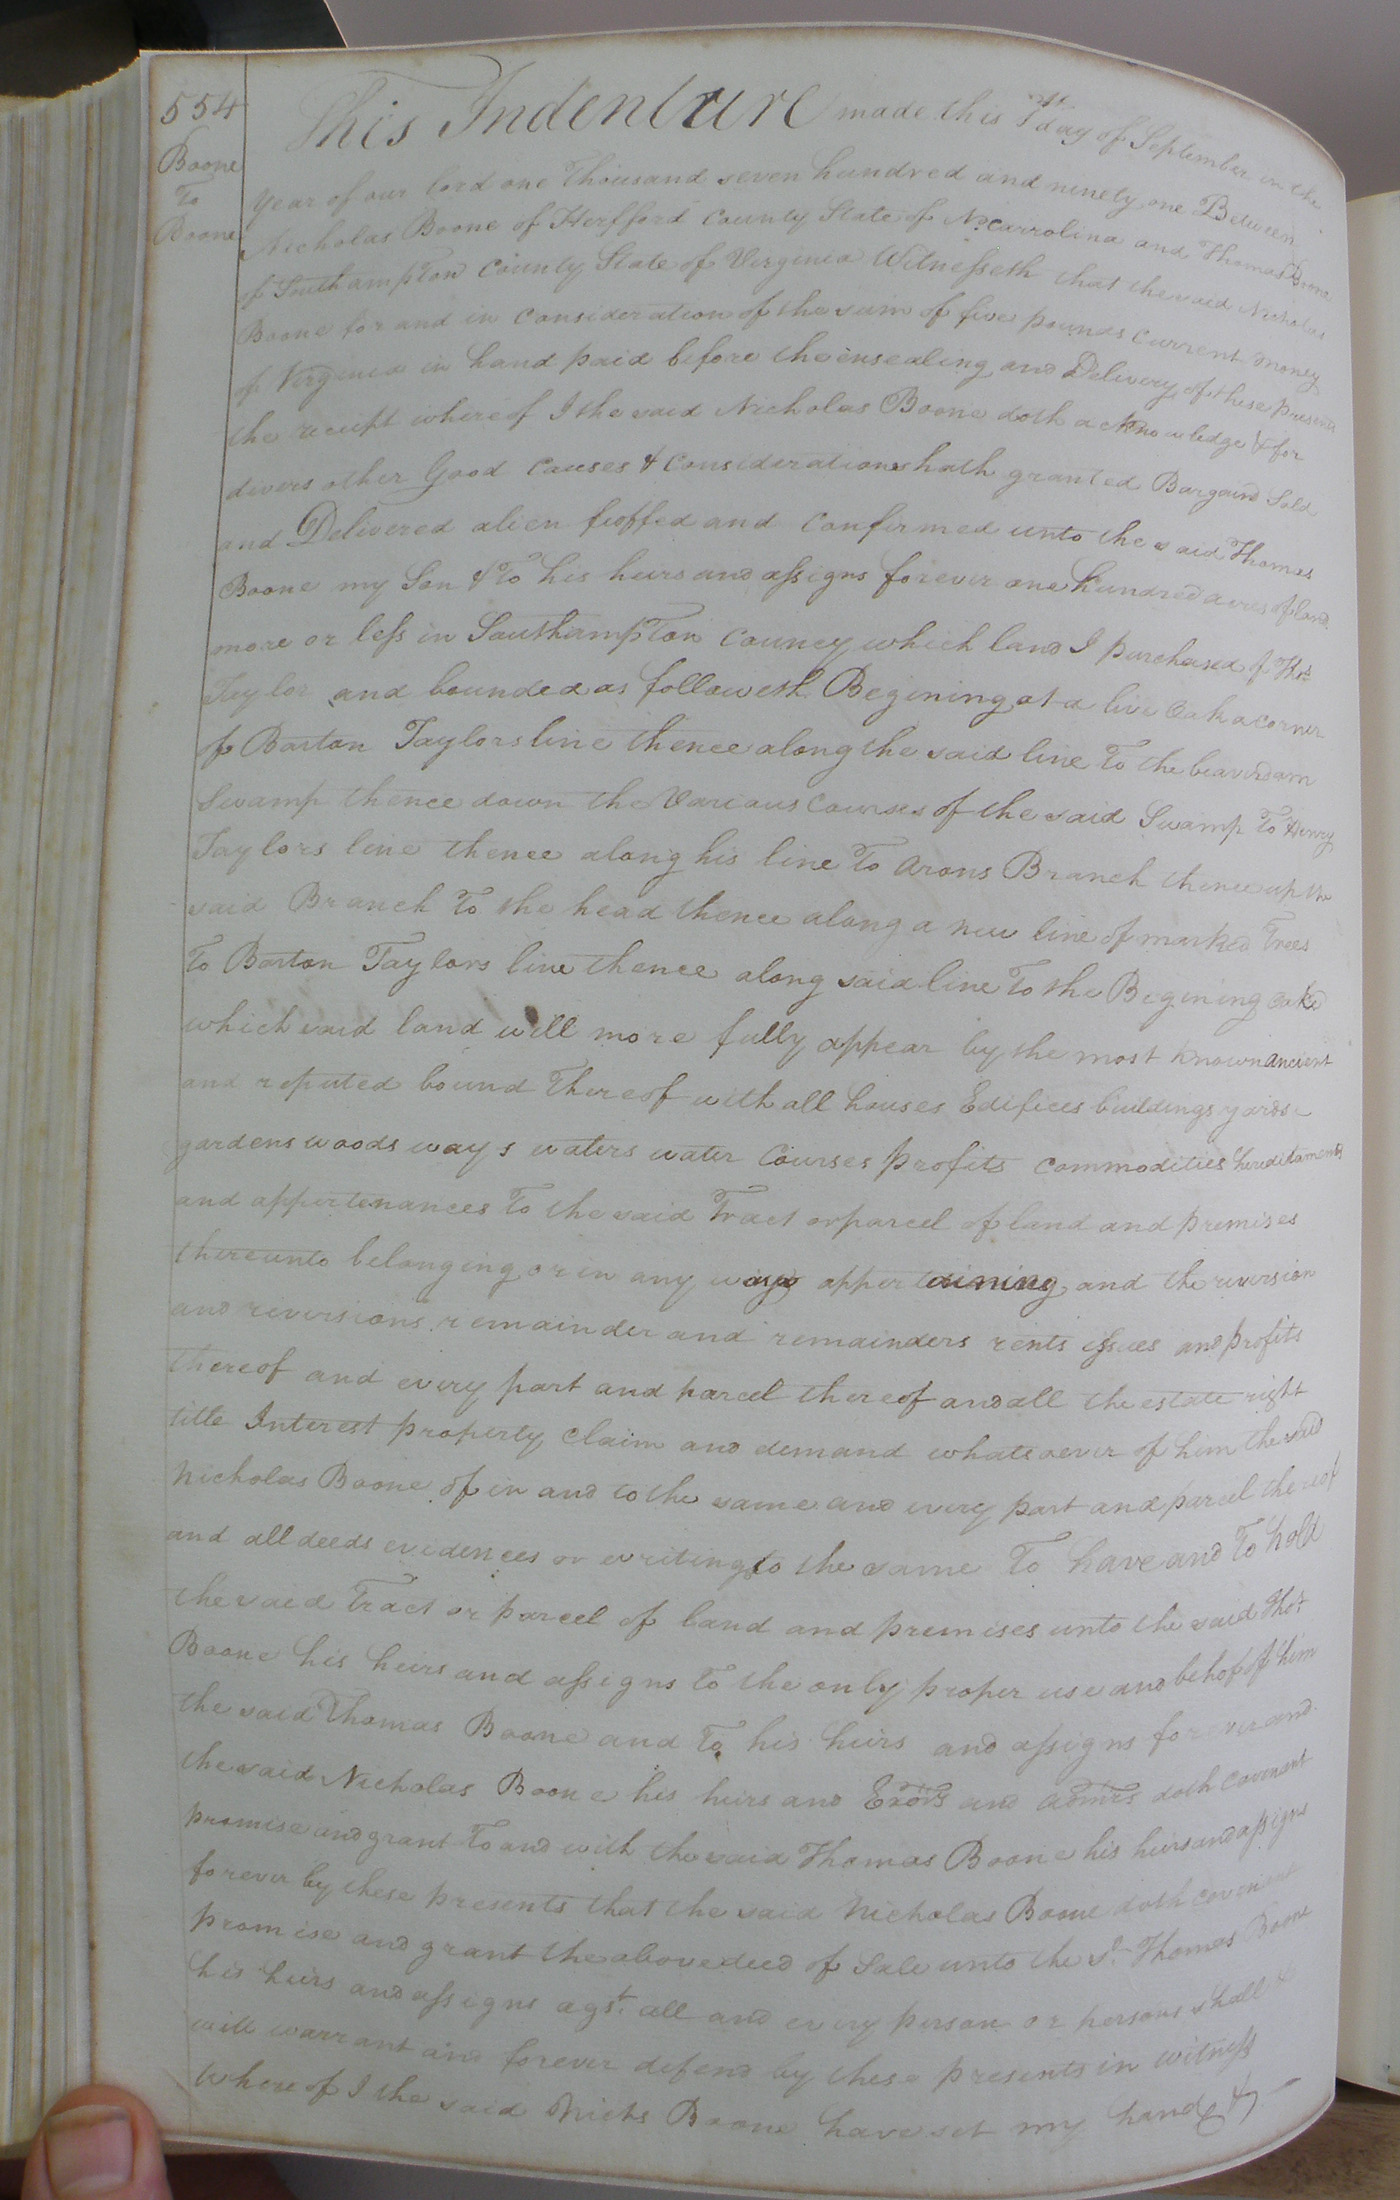 554
Boone
To
Boone
This Indenture made this day of September in the
Year of our lord one Thousand seven hundred and ninety one Between
Nicholas Boone of Hertford County State of No. Carrolina and Thomas Boone
of Southampton County State of Verginia Witnesseth that the said Nicholas
Boone for and in Consideration of the sum of five pounds Current money
of Virginia in hand paid before the ensealing and Delivery of these presents
the receipt whereof I the said Nicholas Boone doth acknowledge & for
divers other Good Causes & Considerations hath granted Bargaind Sold
and Delivered alien feoffed and Confirmed unto the said Thomas
Boone my Son & To his heirs and assigns forever one hundred acres of land
more or less in Southampton County which land I purchased of Thos.
Taylor and bounded as followeth Begining at a live Oak a corner
of Barton Taylors line thence along the said line To the beaverdam
Swamp thence down the Various Courses of the said Swamp To Henry
Taylors line thence along his line To Arons Branch thence up the
said Branch To the head thence along a new line of marked Trees
To Barton Taylors line thence along said line To the Begining Oak
which said land will more fully appear by the most known ancient
and reputed bound Thereof with all houses Edifices buildings yards
gardens woods ways waters water Courses profits Commodities hereditaments
and appertenances To the said Tract or parcel of land and premises
thereunto belonging or in any ways appertaining and the reversion
and reversions remainder and remainders rents issues and profits
thereof and every part and parcel thereof and all the estate right
title Interest property Claim and demand whatsoever of him the said
Nicholas Boone of in and to the same and every part and parcel thereof
and all deeds evidences or writings to the same To have and To hold
the said Tract or parcel of land and premises unto the said Thos.
Boone his heirs and assigns To the only proper use and behof of him
the said Thomas Boone and To his heirs and assigns forever and
the said Nicholas Boone his heirs and Exors and admrs doth Covenant
promise and grant To and with the said Thomas Boone his heirs and assigns
forever by these presents that the said Nicholas Boone doth covenant
promise and grant the above deed of Sale unto the Sd. Thomas Boone
his heirs and assigns agst. all and every person or persons shall &
will warrant and forever defend by these presents in witness
Whereof I the said Nichs Boone have set my hand &